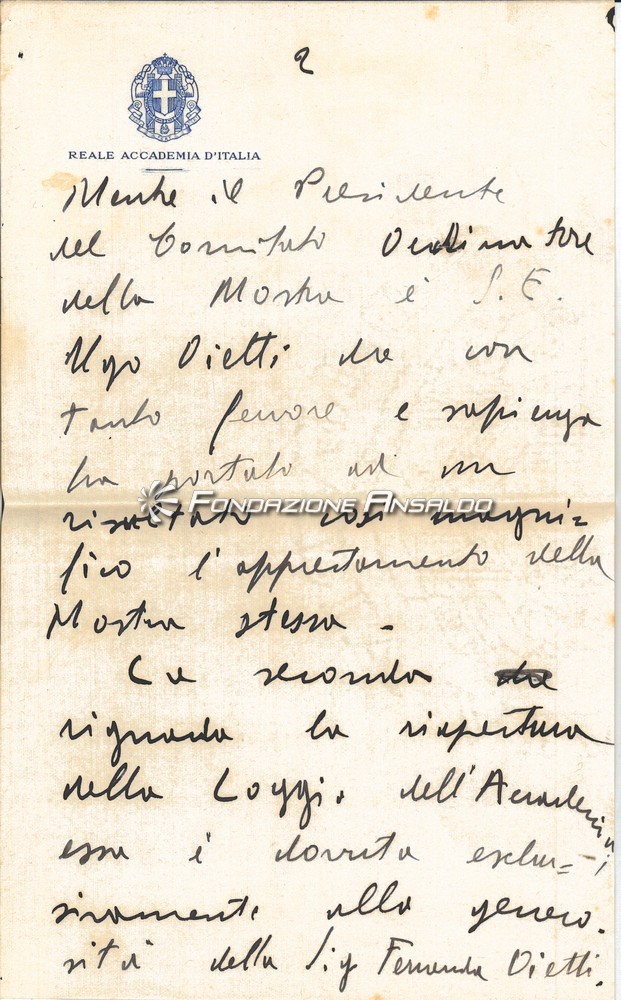 2
REALE ACCADEMIA D'ITALIA
Mentre il Presidente
del Comitato Ordinatore
della Mostra è S. E.
Ugo Ojetti che con
tanto fervore e sapienza
ha portato ad un
FONDAZIONE ANSALDO
risultato così magni=
fico l'apprestamento della
Mostra stessa.
La seconda che
riguarda la riapertura
della Loggia dell'Accademia,
essa è dovuta esclu=
sivamente alla genero-
sità della Sig Fernanda Ojetti.